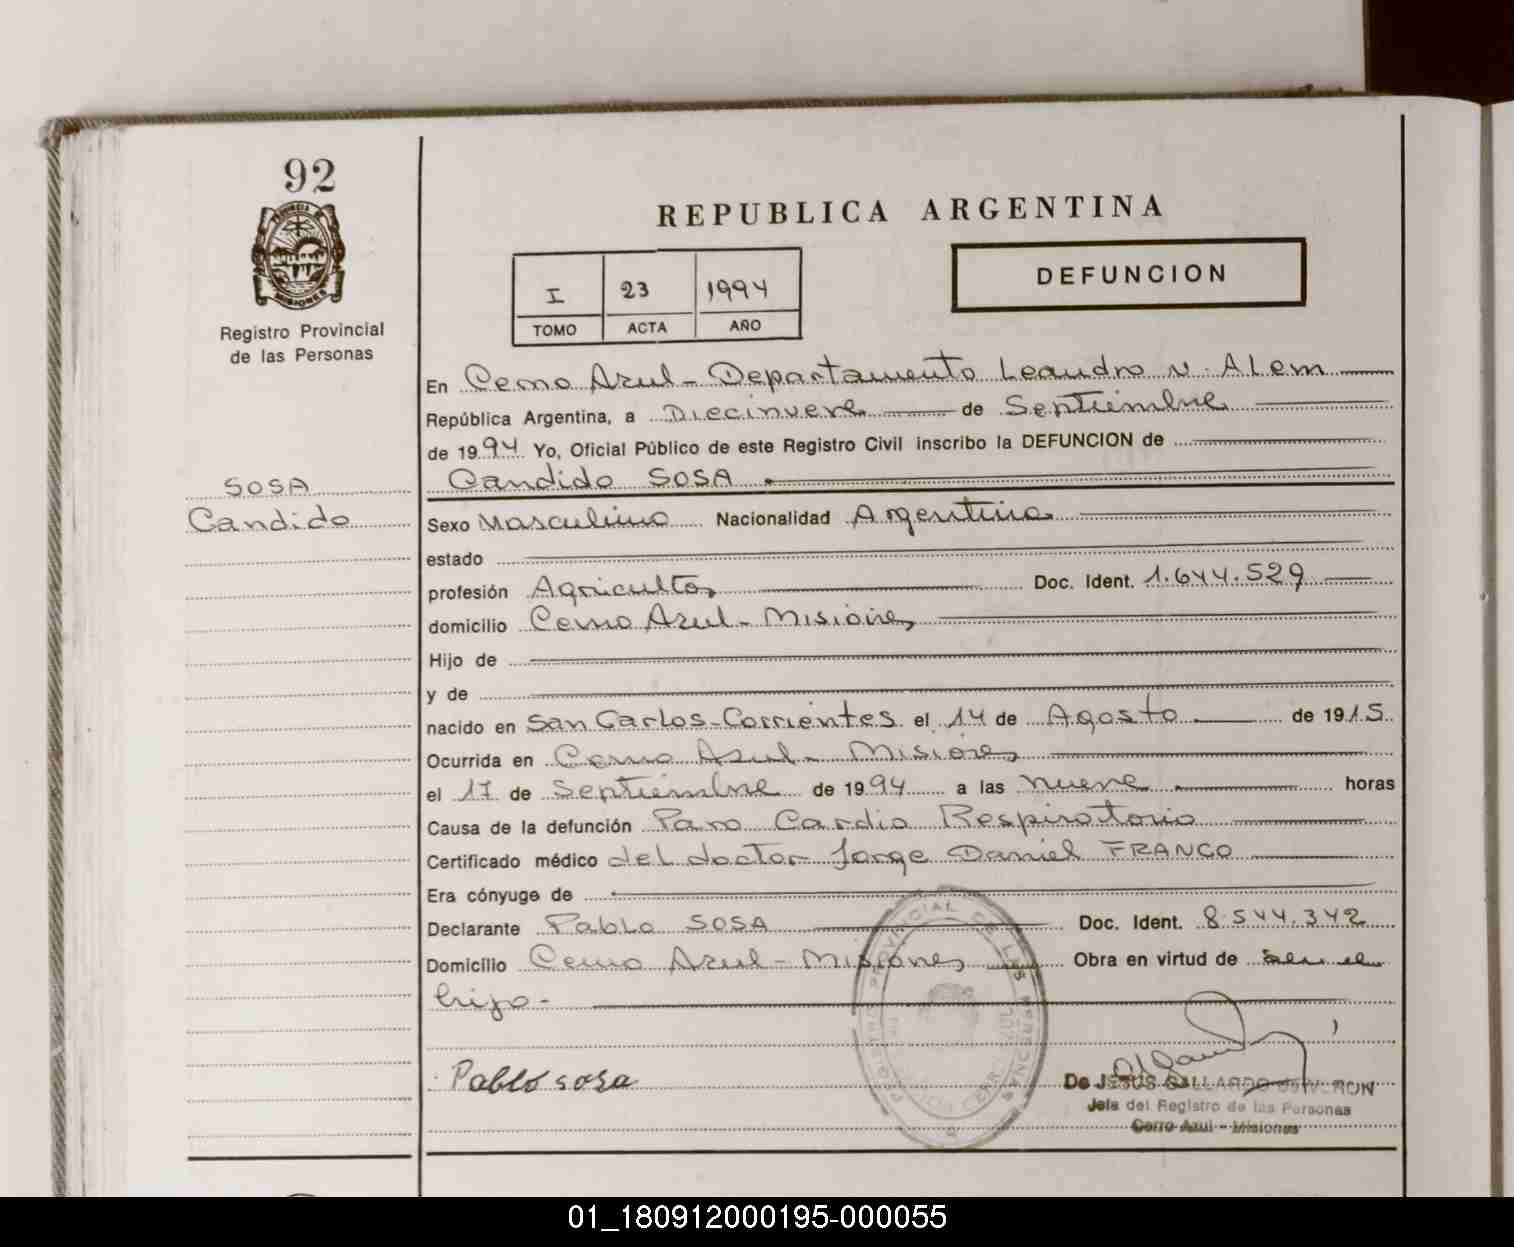 92
PROVINCIA DE
MISIONES
Registro Provincial
de las Personas
REPUBLICA ARGENTINA
I 23 1994
TOMO ACTA AÑO
DEFUNCION
En Cerro Azul - Departamento Leandro N. Alem
República Argentina, a Diecinueve de Septiembre
de 1994 Yo, Oficial Público de este Registro Civil inscribo la DEFUNCION de
Candido SOSA
SOSA
Candido
Sexo Masculino Nacionalidad Argentina
estado
profesión Agricultor Doc. Ident. 1.644.529
domicilio Cerro Azul - Misiones
Hijo de
y de
nacido en San Carlos - Corrientes el 14 de Agosto de 1915
Ocurrida en Cerro Azul - Misiones
el 17 de Septiembre de 1994 a las nueve horas
Causa de la defunción Paro Cardio Respiratorio
Certificado médico del doctor Jorge Daniel FRANCO
Era cónyuge de
Declarante Pablo SOSA Doc. Ident. 8.544.342
Domicilio Cerro Azul - Misiones Obra en virtud de ser el
hijo -
Pablo sosa
De JESUS GALLARDO
Jefa del Registro de las Personas
Cerro Azul - Misiones
01_180912000195-000055